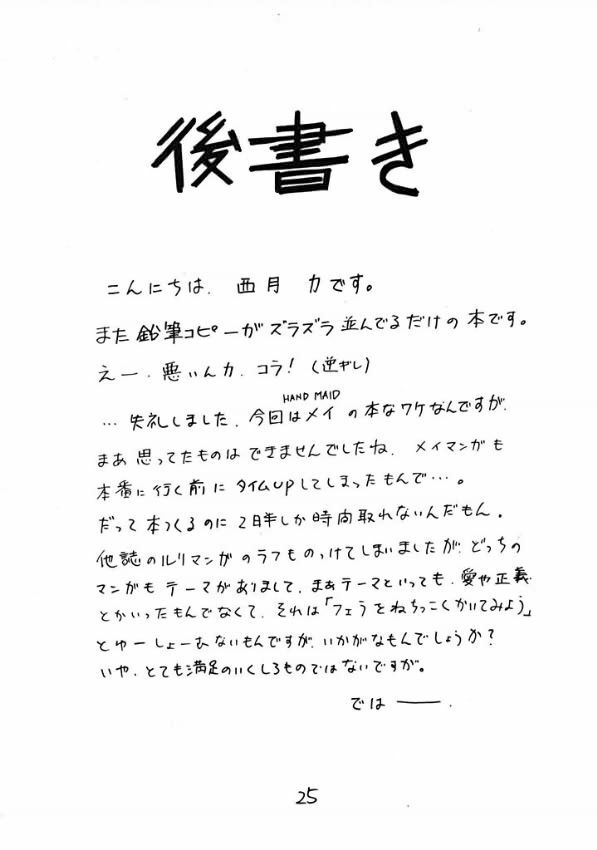 後書き
こんにちは. 西月 力です。
また鉛筆コピーがズラズラ並んでるだけの本です。
えー. 悪いんカ. コラ! (逆ギレ)
HAND MAID
… 失礼しました. 今回はメイの本なワケなんですが.
まあ思ってたものはできませんでしたね. メイマンガも
本番に行く前にタイムupしてしまったもんで…。
だって本つくるのに2日半しか時間取れないんだもん.
他誌のルリマンガのラフものっけてしまいましたが. どっちの
マンガもテーマがありまして. まぁテーマといっても. 愛や正義
とかいったもんでなくて. それは「フェラをねちっこくかいてみよう」
とゆーしょーもないもんですが. いかがなもんでしょうか?
いや. とても満足のいくしろものではないですが。
では ――.
25